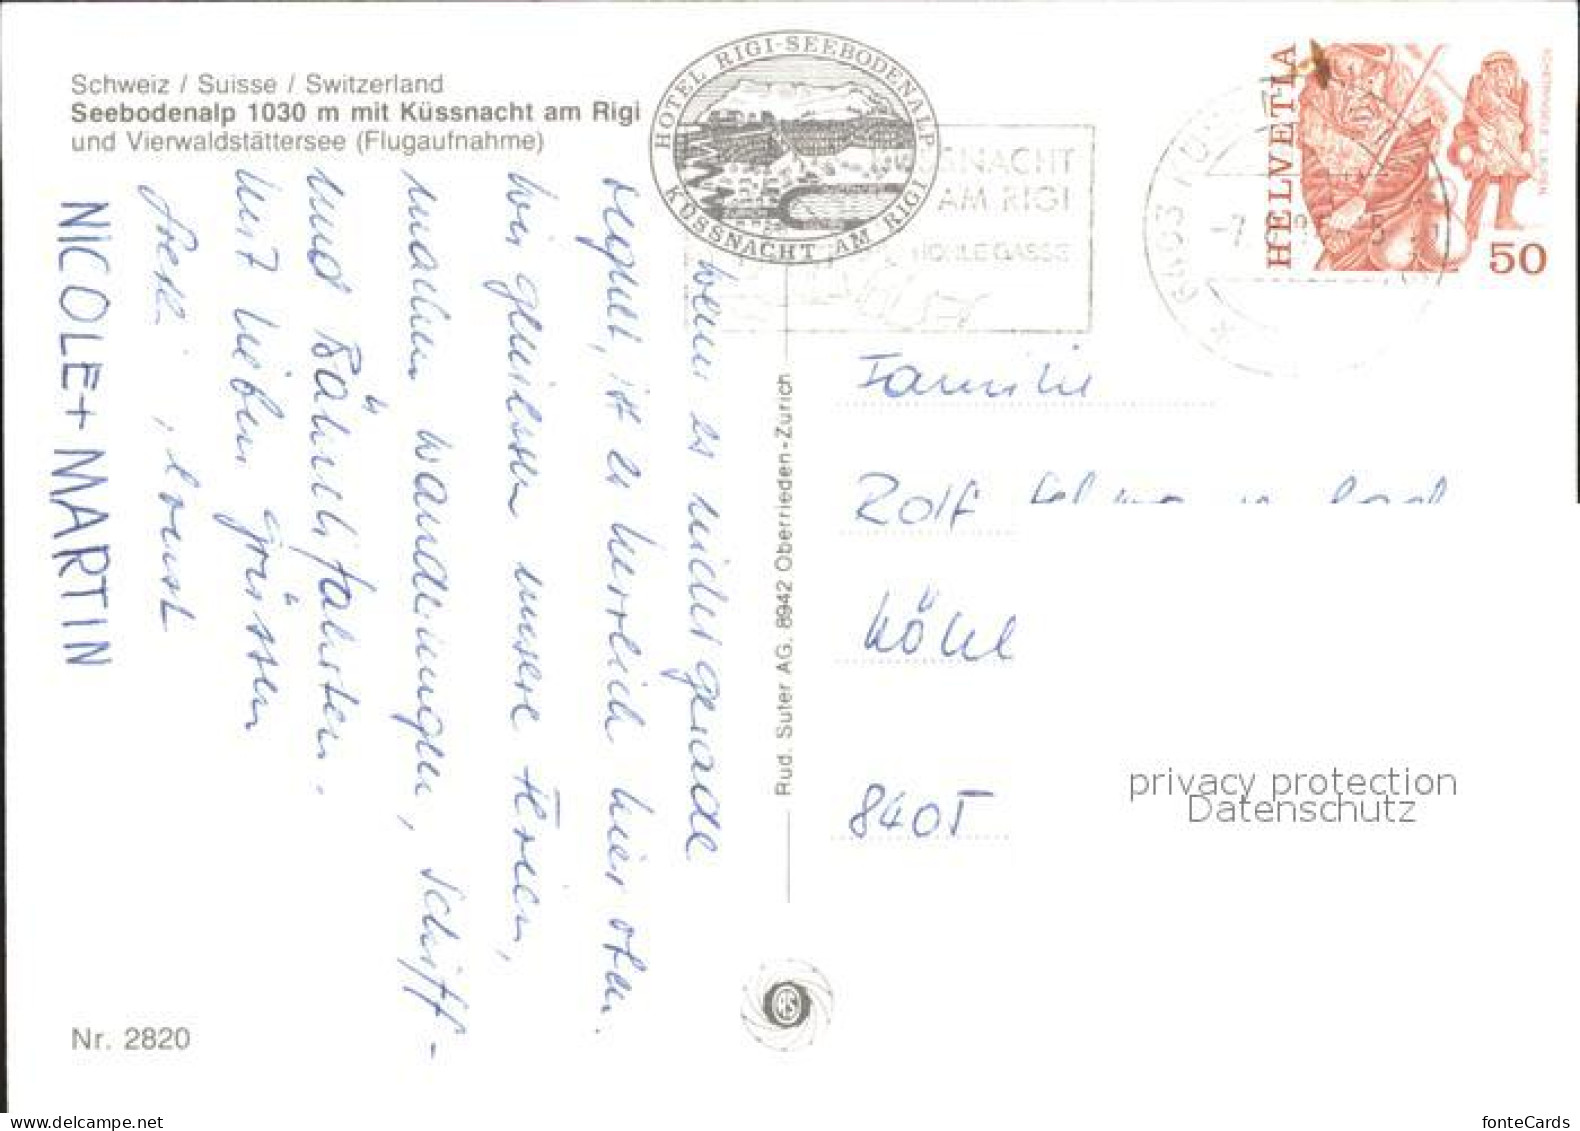 Schweiz / Suisse / Switzerland
Seebodenalp 1030 m mit Küssnacht am Rigi
und Vierwaldstättersee (Flugaufnahme)
HOTEL RIGI-SEEBODENALP
KÜSSNACHT AM RIGI
SNACHT
AM RIGI
HOHLE GASSE
6403 KÜS
HELVETIA
50
Wenn es nicht gerade
regnet, ist es herrlich hier oben.
Wir geniessen unsere Ferien,
machen Wanderungen, Schiff-
und Bähnlifahrten.
Mit lieben Grüssen
, Ernst
NICOLE + MARTIN
Rud. Suter AG. 8942 Oberrieden-Zürich
Familie
Rolf
Köhl
8405
RS
Nr. 2820
privacy protection
Datenschutz
fonteCards